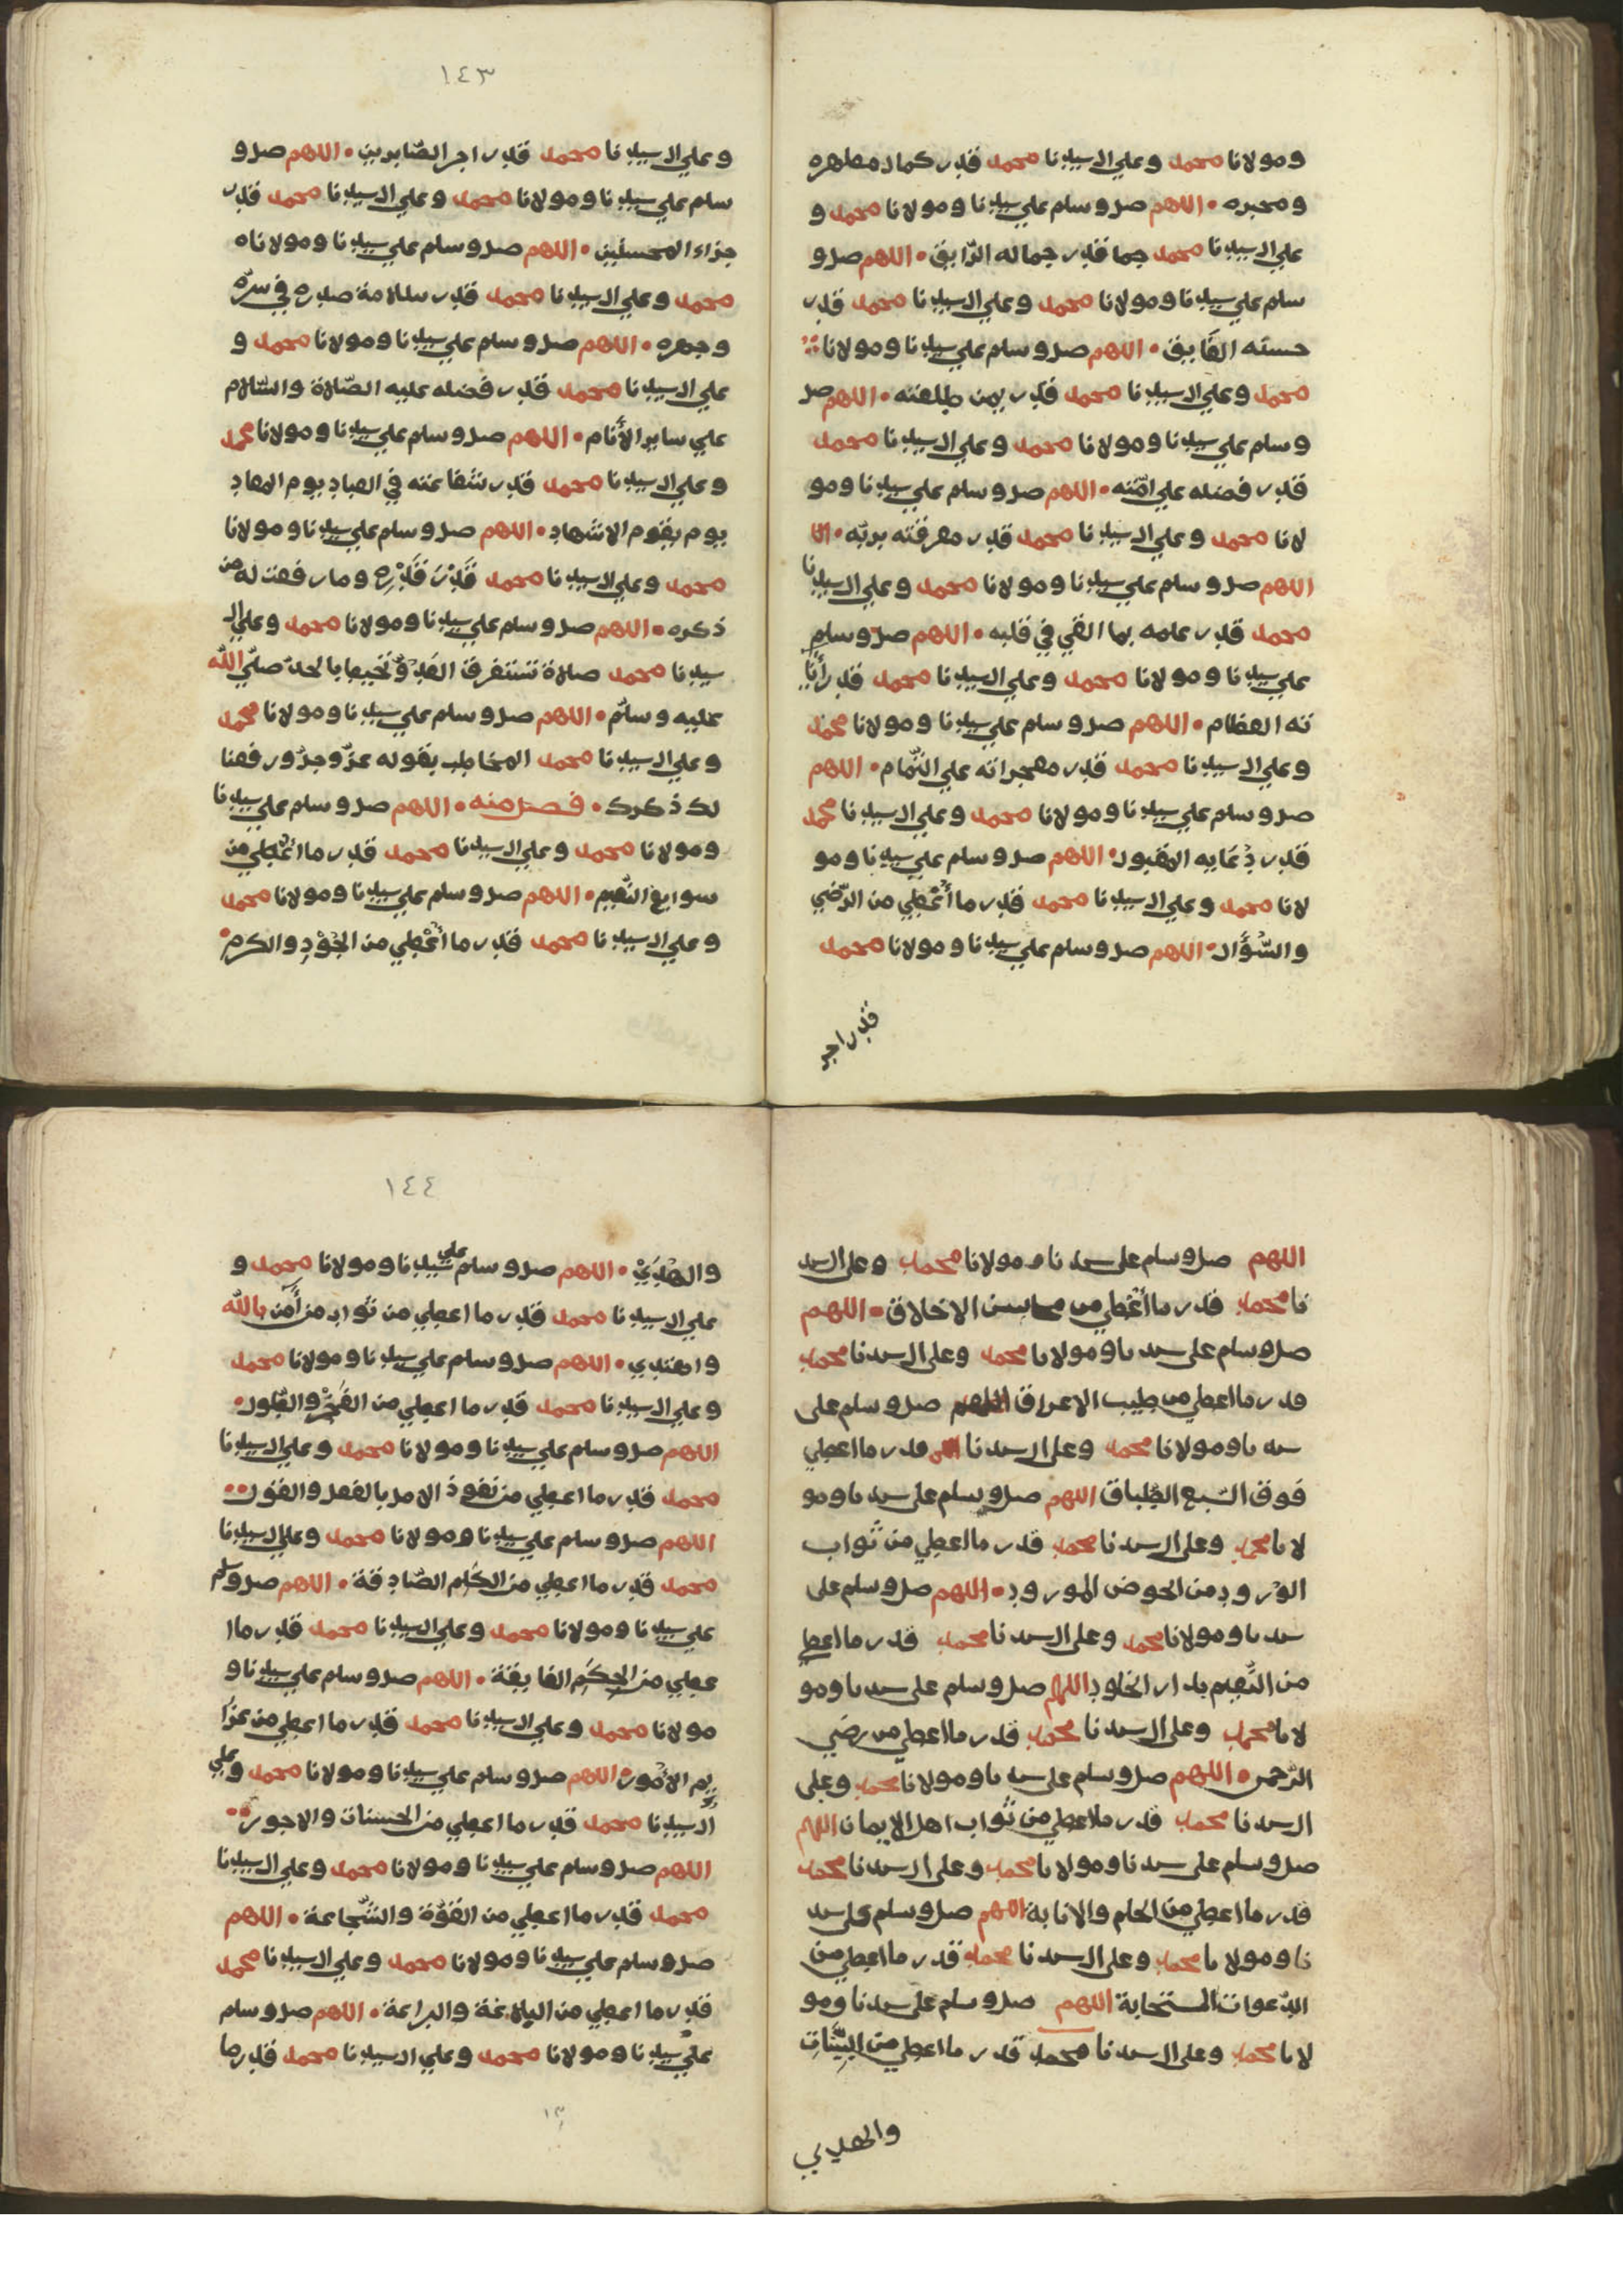 ومولانا محمد وعلي ال سيدنا محمد قدر كمال مظهره
ومخبره • اللهم صل وسلم علي سيدنا ومولانا محمد و
علي ال سيدنا محمد جما قدر جماله الرّايق • اللهم صل و
سلم علي سيدنا ومولانا محمد وعلي ال سيدنا محمد قدر
حسنه الفَايق • اللهم صل وسلم علي سيدنا ومولانا
محمد وعلي ال سيدنا محمد قدر يمن طلعته • اللهم صل
وسلم علي سيدنا ومولانا محمد وعلي ال سيدنا محمد
قدر فضله علي امّته • اللهم صل وسلم علي سيدنا ومو
لانا محمد وعلي ال سيدنا محمد قدر معرفته بربّه •
اللهم صل وسلم علي سيدنا ومولانا محمد وعلي ال سيدنا
محمد قدر علمه بما القي في قلبه • اللهم صل وسلم
علي سيدنا ومولانا محمد وعلي ال سيدنا محمد قدر أيا
ته العظام • اللهم صل وسلم علي سيدنا ومولانا محمد
وعلي ال سيدنا محمد قدر معجزاته علي التّمام • اللهم
صل وسلم علي سيدنا ومولانا محمد وعلي ال سيدنا محمد
قدر دُعَايه المقبول • اللهم صل وسلم علي سيدنا ومو
لانا محمد وعلي ال سيدنا محمد قدر ما أُعْطِي من الرّضي
والسُّؤَال • اللهم صل وسلم علي سيدنا ومولانا محمد
قدر اجر
١٤٣
وعلي ال سيدنا محمد قدر اجر الصّابرين • اللهم صل و
سلم علي سيدنا ومولانا محمد وعلي ال سيدنا محمد قدر
جزاء المحسنين • اللهم صل وسلم علي سيدنا ومولانا
محمد وعلي ال سيدنا محمد قدر سلامة صدره في سرّه
وجهره • اللهم صل وسلم علي سيدنا ومولانا محمد و
علي ال سيدنا محمد قدر فضله عليه الصّلاة والسّلام
علي ساير الأَنام • اللهم صل وسلم علي سيدنا ومولانا محمد
وعلي ال سيدنا محمد قدر شفاعته في العباد يوم المعاد
يوم يقوم الاشهاد • اللهم صل وسلم علي سيدنا ومولانا
محمد وعلي ال سيدنا محمد قَدْرَ قَدْرِه وما رفعت له من
ذكره • اللهم صل وسلم علي سيدنا ومولانا محمد وعلي ال
سيدنا محمد صلاة تستغرق العَدّ وتُحيط بالحدّ صلّي الله
عليه وسلّم • اللهم صل وسلم علي سيدنا ومولانا محمد
وعلي ال سيدنا محمد المخاطب بقوله عزّ وجلّ ورفعنا
لك ذكرك • فصل منه • اللهم صل وسلم علي سيدنا
ومولانا محمد وعلي ال سيدنا محمد قدر ما اُعْطِي من
سوابغ النِّعَم • اللهم صل وسلم علي سيدنا ومولانا محمد
وعلي ال سيدنا محمد قدر ما اُعْطِي من الجُوْدِ والكرم •
اللهم صل وسلم على سيدنا ومولانا محمد وعلى ال سيد
نا محمد قدر ما أُعْطِي من محاسن الاخلاق • اللهم
صل وسلم على سيدنا ومولانا محمد وعلى ال سيدنا محمد
قدر ما اعطي من طيب الاعراق اللهم صل وسلم على
سيدنا ومولانا محمد وعلى ال سيدنا قدر ما اعطي
فوق السّبع الطِّباق اللهم صل وسلم على سيدنا ومو
لانا محمد وعلى ال سيدنا محمد قدر ما اعطي من ثواب
الوُرود من الحوض المورود • اللهم صل وسلم على
سيدنا ومولانا محمد وعلى ال سيدنا محمد قدر ما اعطي
من النَّعيم بدار الخلود اللهم صل وسلم على سيدنا ومو
لانا محمد وعلى ال سيدنا محمد قدر ما اعطي من رضي
الرّحمن • اللهم صل وسلم على سيدنا ومولانا محمد وعلى
ال سيدنا محمد قدر ما اعطي من ثواب اهل الايمان اللهم
صل وسلم على سيدنا ومولانا محمد وعلى ال سيدنا محمد
قدر ما اعطي من الحلم والانابة اللهم صل وسلم على سيد
نا ومولانا محمد وعلى ال سيدنا محمد قدر ما اعطي من
الدّعوات المستجابة اللهم صل وسلم على سيدنا ومو
لانا محمد وعلى ال سيدنا محمد قدر ما اعطي من البيّنات
والهدي
١٤٤
والهُدَيْ • اللهم صل وسلم علي سيدنا ومولانا محمد و
علي ال سيدنا محمد قدر ما اعطي من ثواب من أمن بالله
واهتدي • اللهم صل وسلم علي سيدنا ومولانا محمد
وعلي ال سيدنا محمد قدر ما اعطي من الفَخْر والطّول •
اللهم صل وسلم علي سيدنا ومولانا محمد وعلي ال سيدنا
محمد قدر ما اعطي من نفوذ الامر بالفعل والقول ••
اللهم صل وسلم علي سيدنا ومولانا محمد وعلي ال سيدنا
محمد قدر ما اعطي من الكَلِم الصّادقة • اللهم صل وسلم
علي سيدنا ومولانا محمد وعلي ال سيدنا محمد قدر ما ا
عطي من الحِكَم الفايقة • اللهم صل وسلم علي سيدنا و
مولانا محمد وعلي ال سيدنا محمد قدر ما اعطي من عزا
يم الامور • اللهم صل وسلم علي سيدنا ومولانا محمد وعلي
ال سيدنا محمد قدر ما اعطي من الحسنات والاجور ••
اللهم صل وسلم علي سيدنا ومولانا محمد وعلي ال سيدنا
محمد قدر ما اعطي من القوّة والشّجاعة • اللهم
صل وسلم علي سيدنا ومولانا محمد وعلي ال سيدنا محمد
قدر ما اعطي من البلاغة والبراعة • اللهم صل وسلم
علي سيدنا ومولانا محمد وعلي ال سيدنا محمد قدر ما